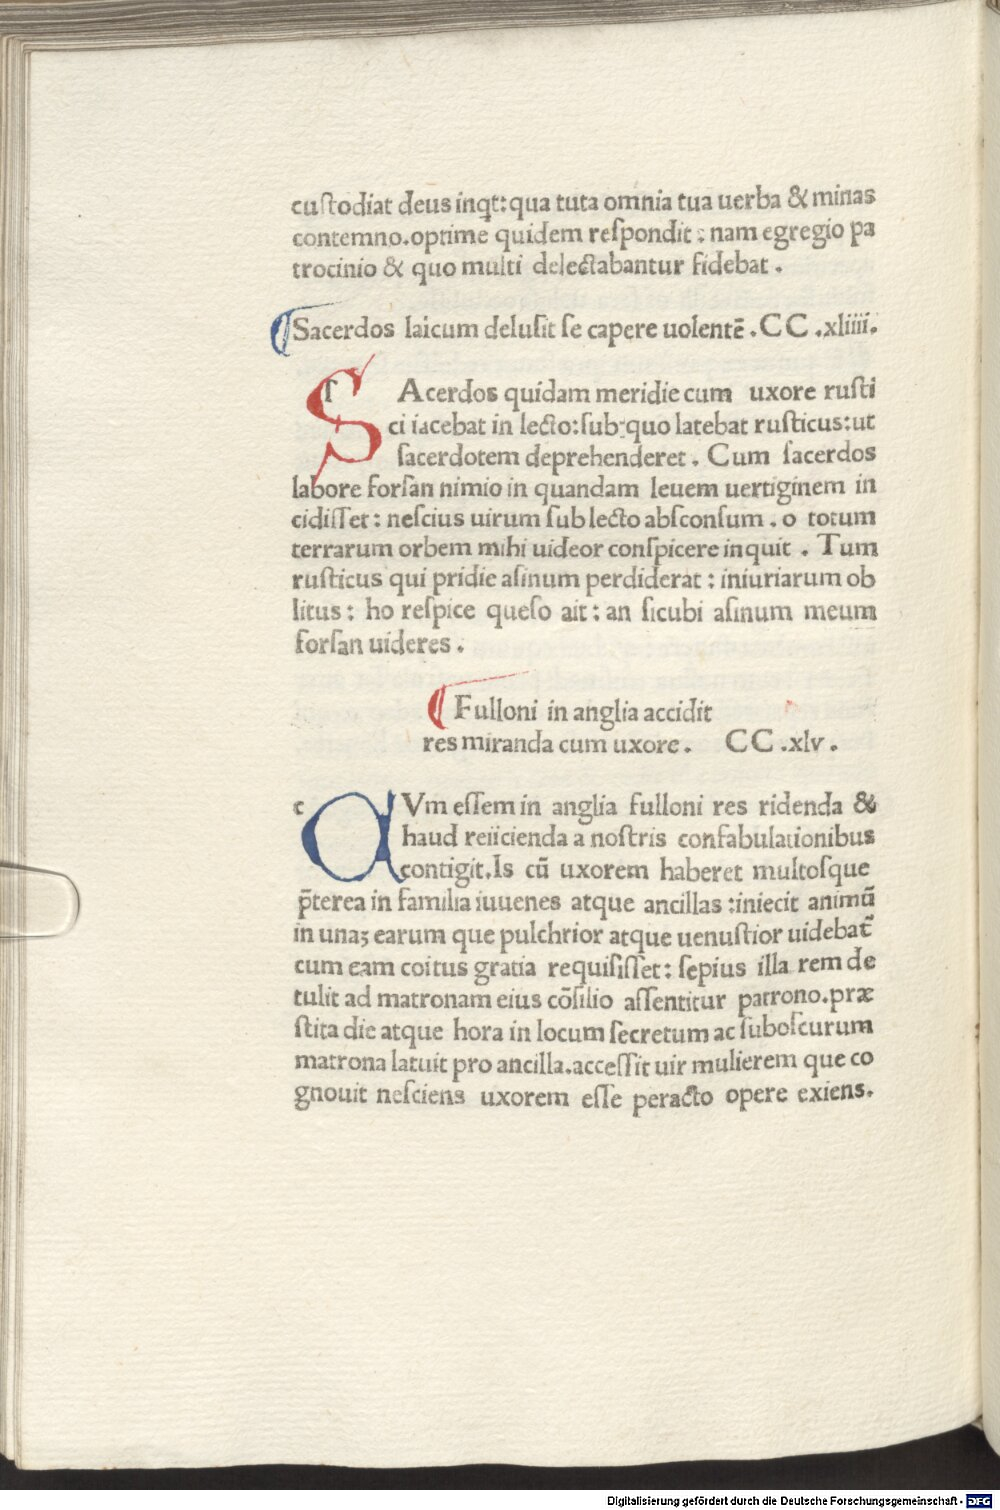 custodiat deus inq̃t: qua tuta omnia tua uerba & minas
contemno. optime quidem respondit: nam egregio pa
trocinio & quo multi delectabantur fidebat.
¶ Sacerdos laicum delusit se capere uolentē. CC.xliiii.
SAcerdos quidam meridie cum uxore rusti
ci iacebat in lecto: sub quo latebat rusticus: ut
sacerdotem deprehenderet. Cum sacerdos
labore forsan nimio in quandam leuem uertiginem in
cidisset: nescius uirum sub lecto absconsum. o totum
terrarum orbem mihi uideor conspicere inquit. Tum
rusticus qui pridie asinum perdiderat: iniuriarum ob
litus: ho respice queso ait: an sicubi asinum meum
forsan uideres.
¶ Fulloni in anglia accidit
res miranda cum uxore. CC.xlv.
c QVm essem in anglia fulloni res ridenda &
haud reiicienda a nostris confabulationibus
contigit. Is cū uxorem haberet multosque
p̄terea in familia iuuenes atque ancillas: iniecit animū
in unaꝫ earum que pulchrior atque uenustior uidebat̄
cum eam coitus gratia requisisset: sepius illa rem de
tulit ad matronam eius cōsilio assentitur patrono. præ
stita die atque hora in locum secretum ac suboscurum
matrona latuit pro ancilla. accessit uir mulierem que co
gnouit nesciens uxorem esse peracto opere exiens.
Digitalisierung gefördert durch die Deutsche Forschungsgemeinschaft - DFG